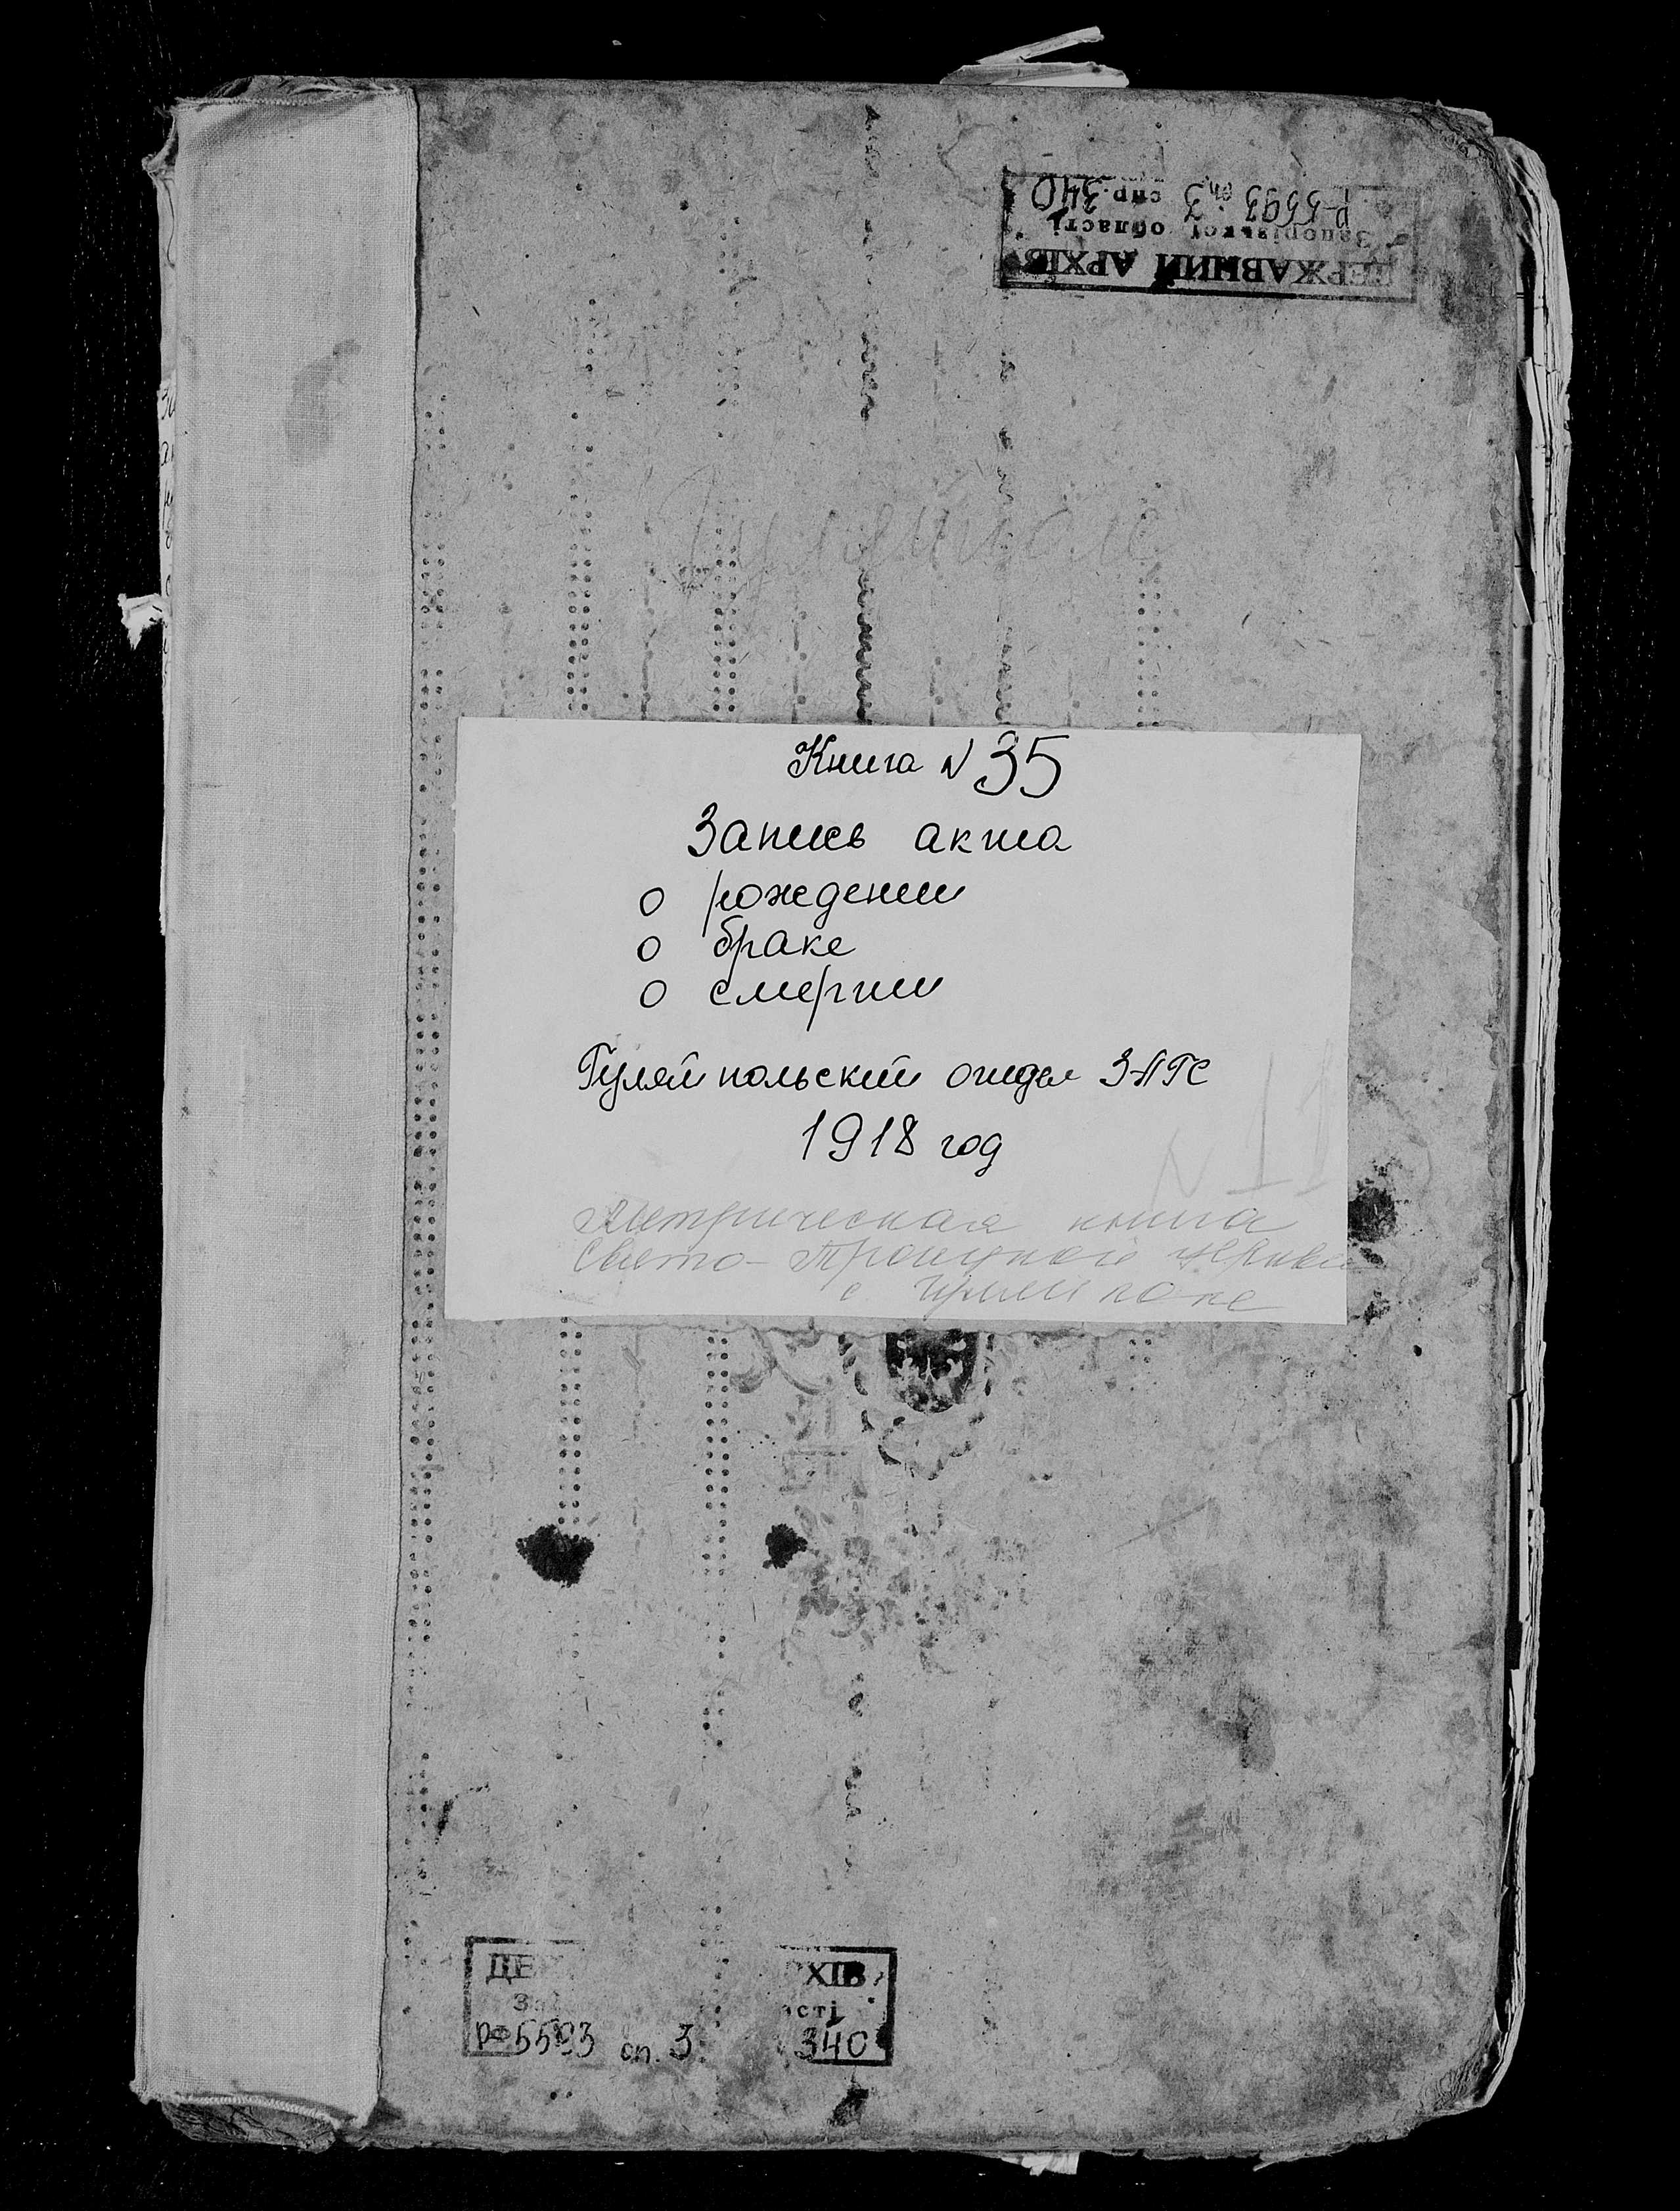 ДЕРЖАВНИЙ АРХІВ
Запорізької області
Р-5593 оп. 3 спр. 340
Гуляйполе
Книга N 35
Запись акта
о рождении
о браке
о смерти
Гуляйпольский отдел ЗАГС
1918 год
N 11
Метрическая книга
Свято-Троицкой церкви
с. Гуляйполе
ДЕ РХІВ
За асті
Р-5593 оп. 3 340